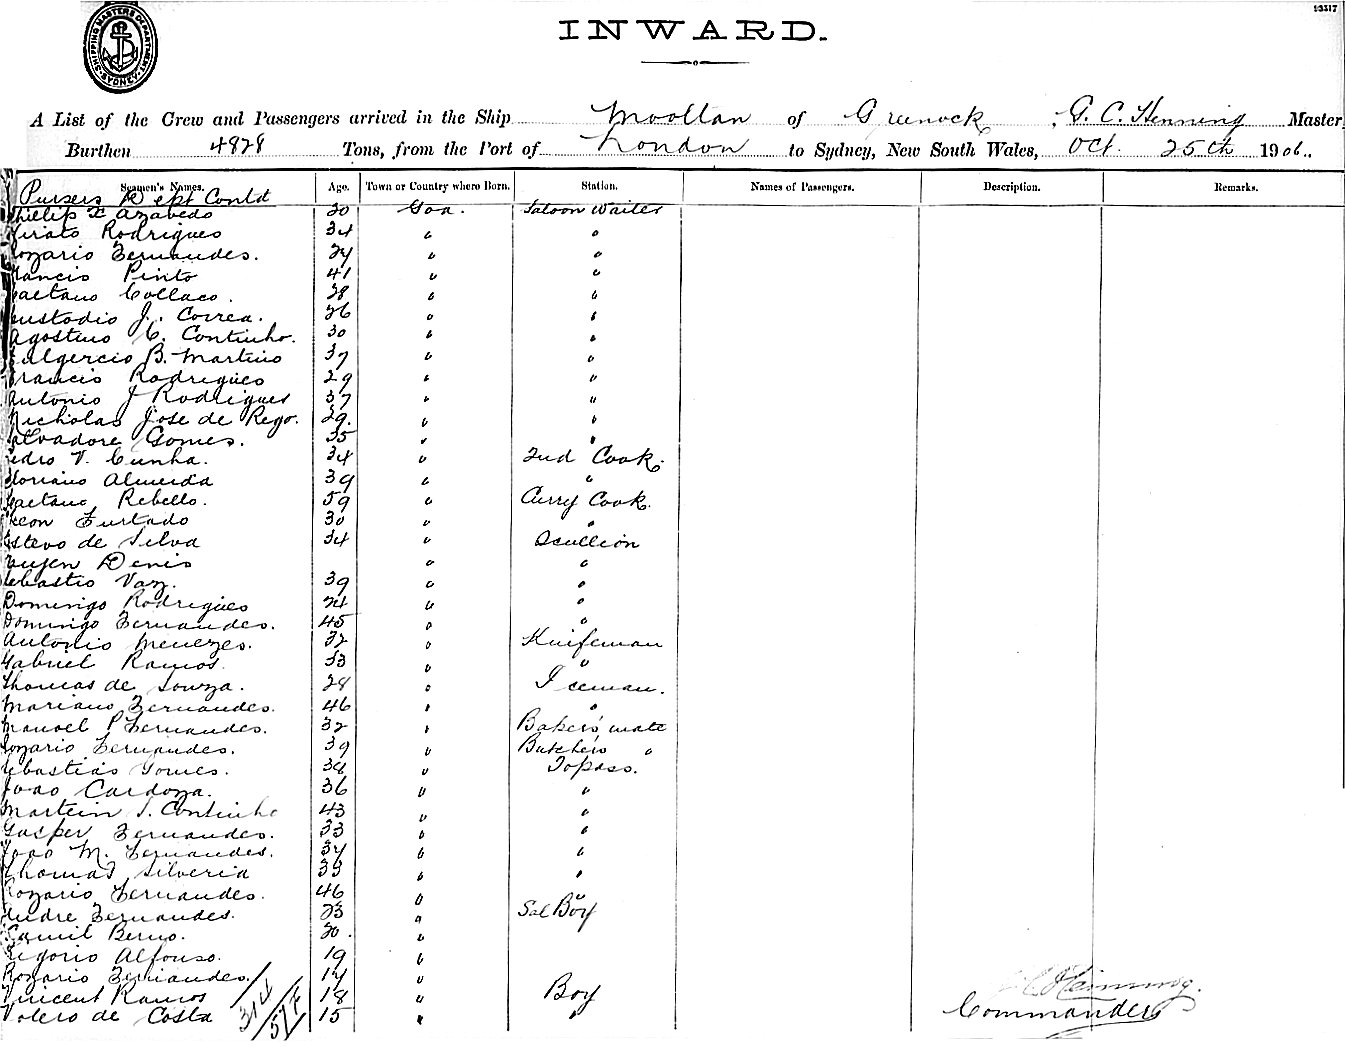 93317
SHIPPING MASTERS DEPARTMENT SYDNEY
INWARD.
A List of the Crew and Passengers arrived in the Ship Mooltan of Greenock, G. C. Henning Master
Burthen 4828 Tons, from the Port of London to Sydney, New South Wales, Oct. 25th 1906.
Seamen's Names. Age. Town or Country where Born. Station. Names of Passengers. Description. Remarks.
Pursers Dept Contd
Phillip X Azabedo 30 Goa. Saloon Waiter
Rodrigues 34 " "
Rozario Fernandes. 24 " "
Francis Pinto 41 " "
Caetano Collaco. 28 " "
Custodio J. Correa. 26 " "
Agostino C. Continho. 30 " "
Fulgercio B. Martins 37 " "
Francis Rodrigues 29 " "
Antonio J Rodrigues 37 " "
Nicholas Jose de Rego. 29. " "
Salvadore Gomes. 35 " "
Pedro V. Cunha. 34 " 2nd Cook.
Floriano Almeida 39 " "
Caetano Rebello. 59 " Curry Cook.
Leon Furtado 30 " "
Estevo de Silva 34 " Scullion
Denis " "
Sebastio Vaz. 39 " "
Domingo Rodrigues 24 " "
Domingo Fernandes. 45 " "
Antonio Menezes. 32 " Knifeman
Gabriel Ramos. 33 " "
Thomas de Souza. 28 " Iceman.
Mariano Fernandes. 46 " "
Manoel P Fernandes. 32 " Bakers' mate
Rozario Fernandes. 39 " Butchers "
Sebastias Gomes. 38 " Topass.
Joao Cardoza. 36 " "
Martein S. Continho 43 " "
Gasper Fernandes. 33 " "
Joao M. Fernandes. 34 " "
Thomas Silveria 33 " "
Rozario Fernandes. 46 " "
Andre Fernandes. 23 " Sal Boy
Camil Berno. 20. "
Ligorio Alfonso. 19 "
Rozario Fernandes. 17 "
Vincent Ramos 18 " Boy
de Costa 15 " "
G C Henning.
Commander